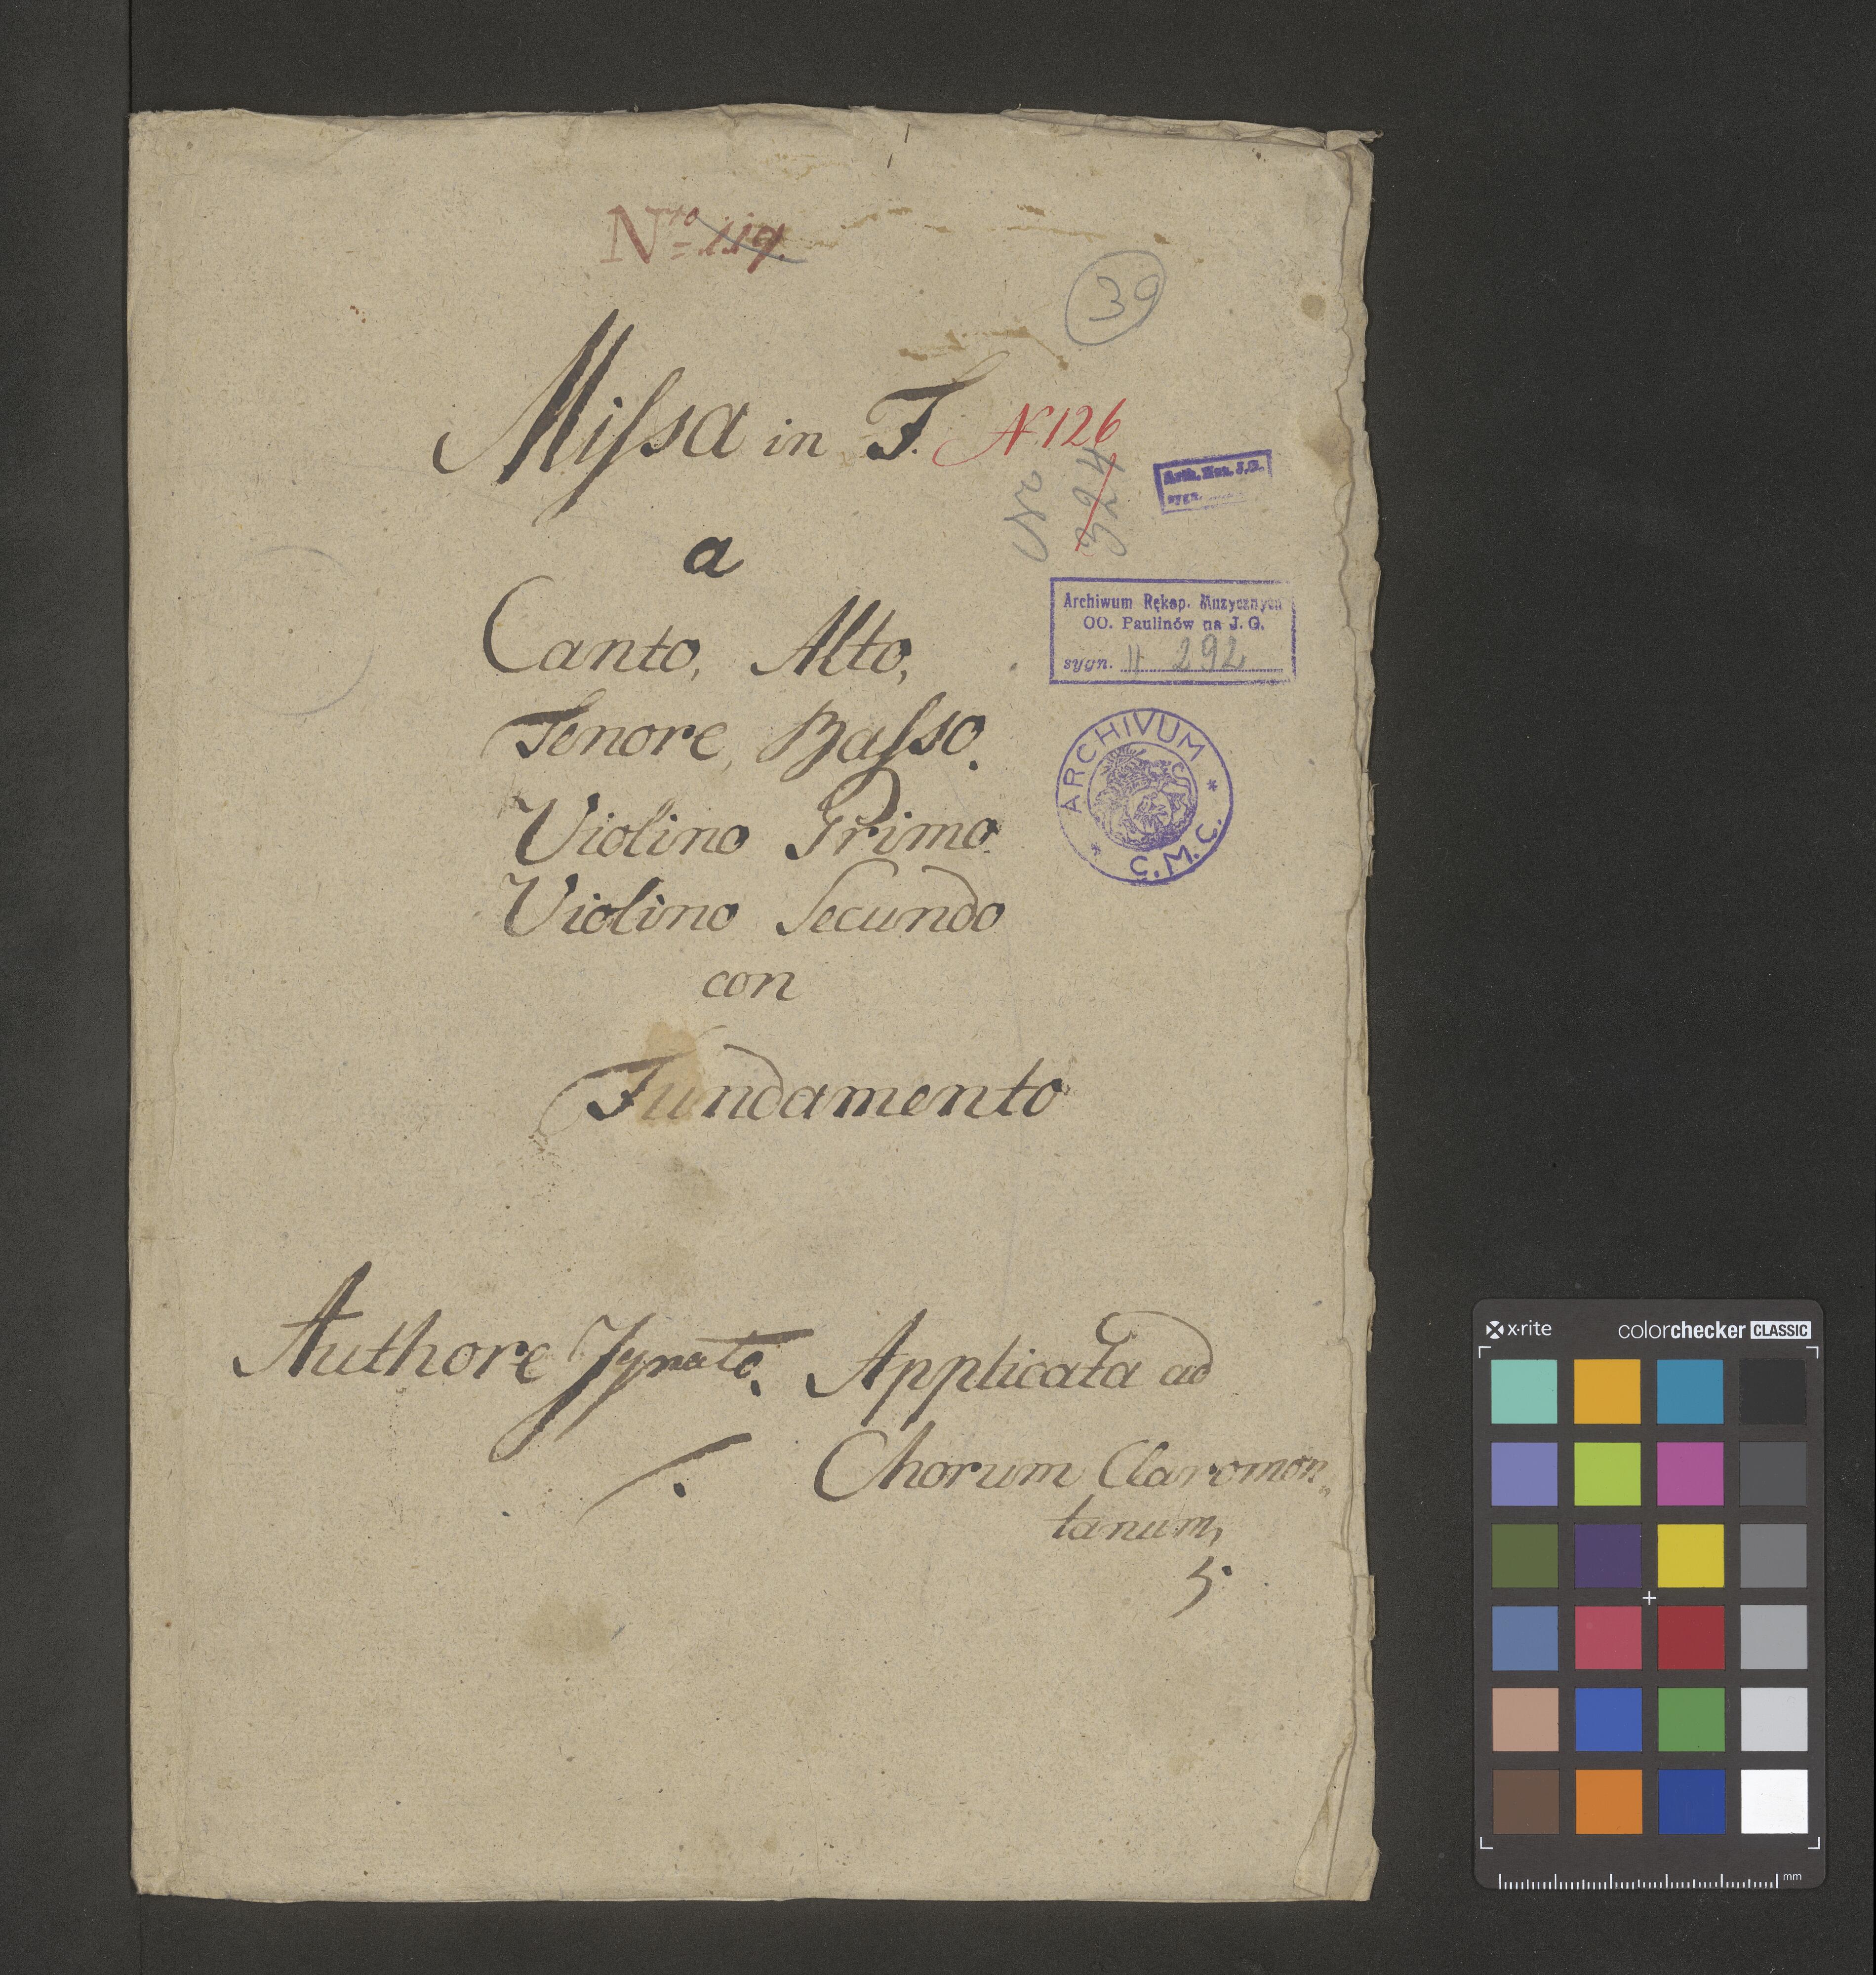 Nro 119.
39
Missa in F. N. 126
No 324
Arch. Muz. J.G.
sygn.
a
Canto, Alto,
Archiwum Rękop. Muzycznych
OO. Paulinów na J. G.
sygn. II 292
Tenore, Basso.
ARCHIVUM * C.M.C. *
Violino Primo
Violino Secundo
con
Fundamento
Authore Ignoto. Applicata ad
Chorum Claromon„
tanum,
x-rite colorchecker CLASSIC
mm